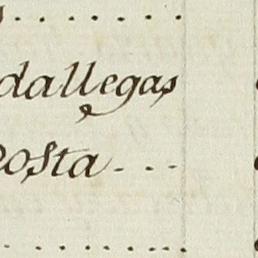 dallegas
osta...